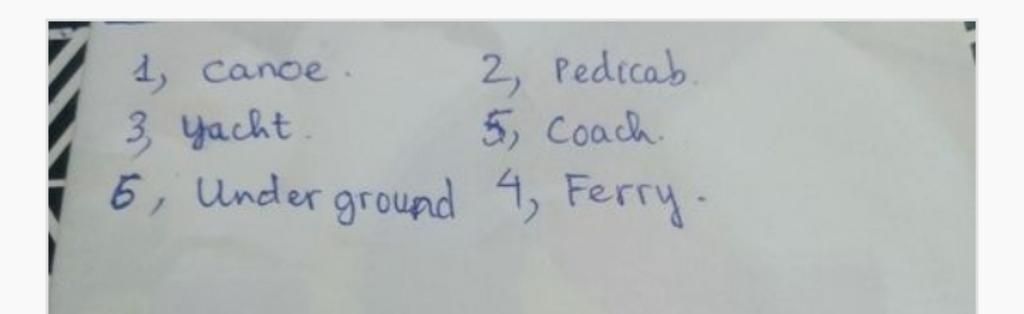 1, canoe. 2, Pedicab.
3, Yacht. 5, Coach.
6, Underground 4, Ferry.